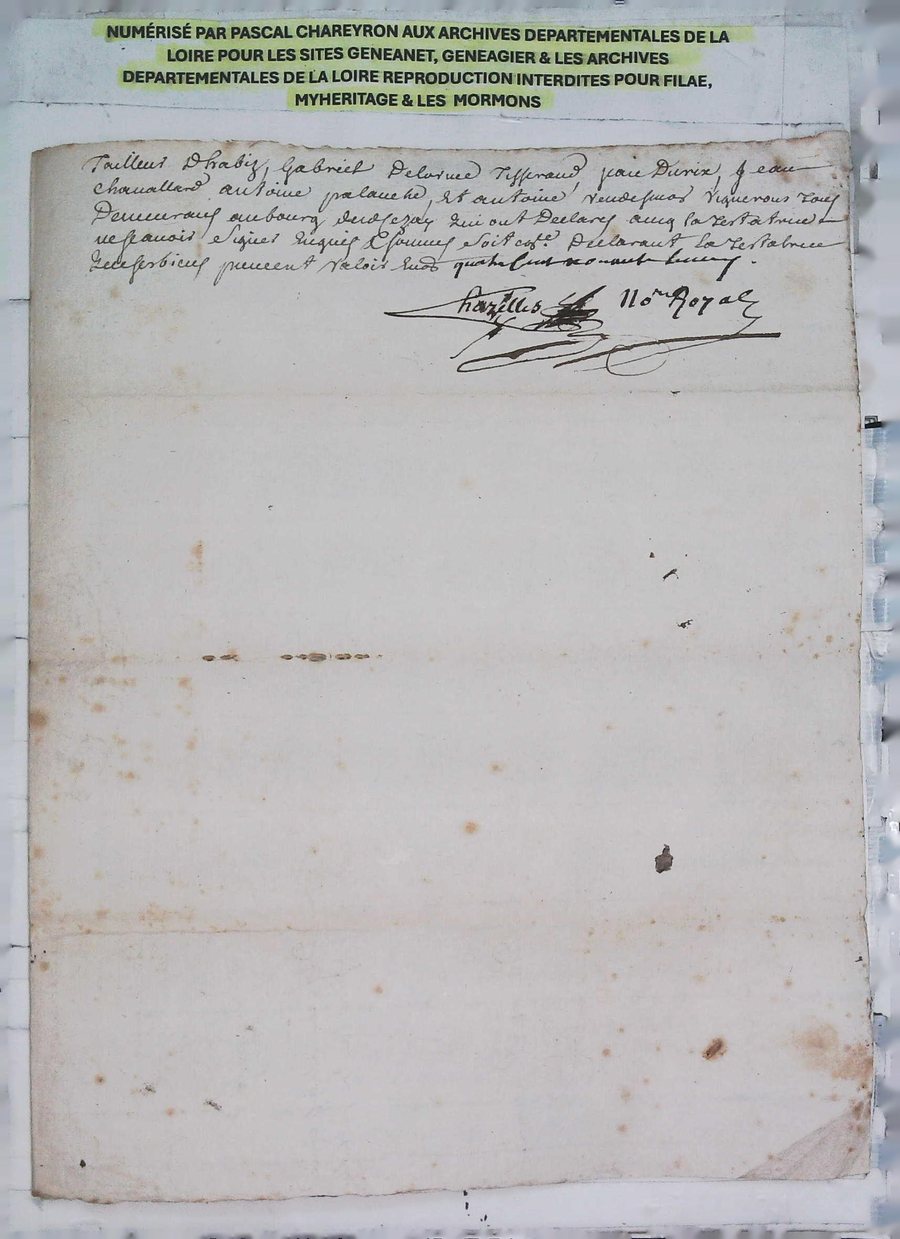 NUMÉRISÉ PAR PASCAL CHAREYRON AUX ARCHIVES DEPARTEMENTALES DE LA
LOIRE POUR LES SITES GENEANET, GENEAGIER & LES ARCHIVES
DEPARTEMENTALES DE LA LOIRE REPRODUCTION INTERDITES POUR FILAE,
MYHERITAGE & LES MORMONS
Tailleur Dhabiz, Gabriel Delorme Tisserand, jean Durix, Jean
Chavallard antoine palanche, Et antoine Vendesmos Vignerons Tous
Demeurans au bourg Qui ont Declaré avoir la Testatrice
ne scavoir Signer Enquis & Sommés Soit Declarant La Testatrice
Que Ses biens peuvent Valoir quatre Cent nonante
Chazelles No.re Royal